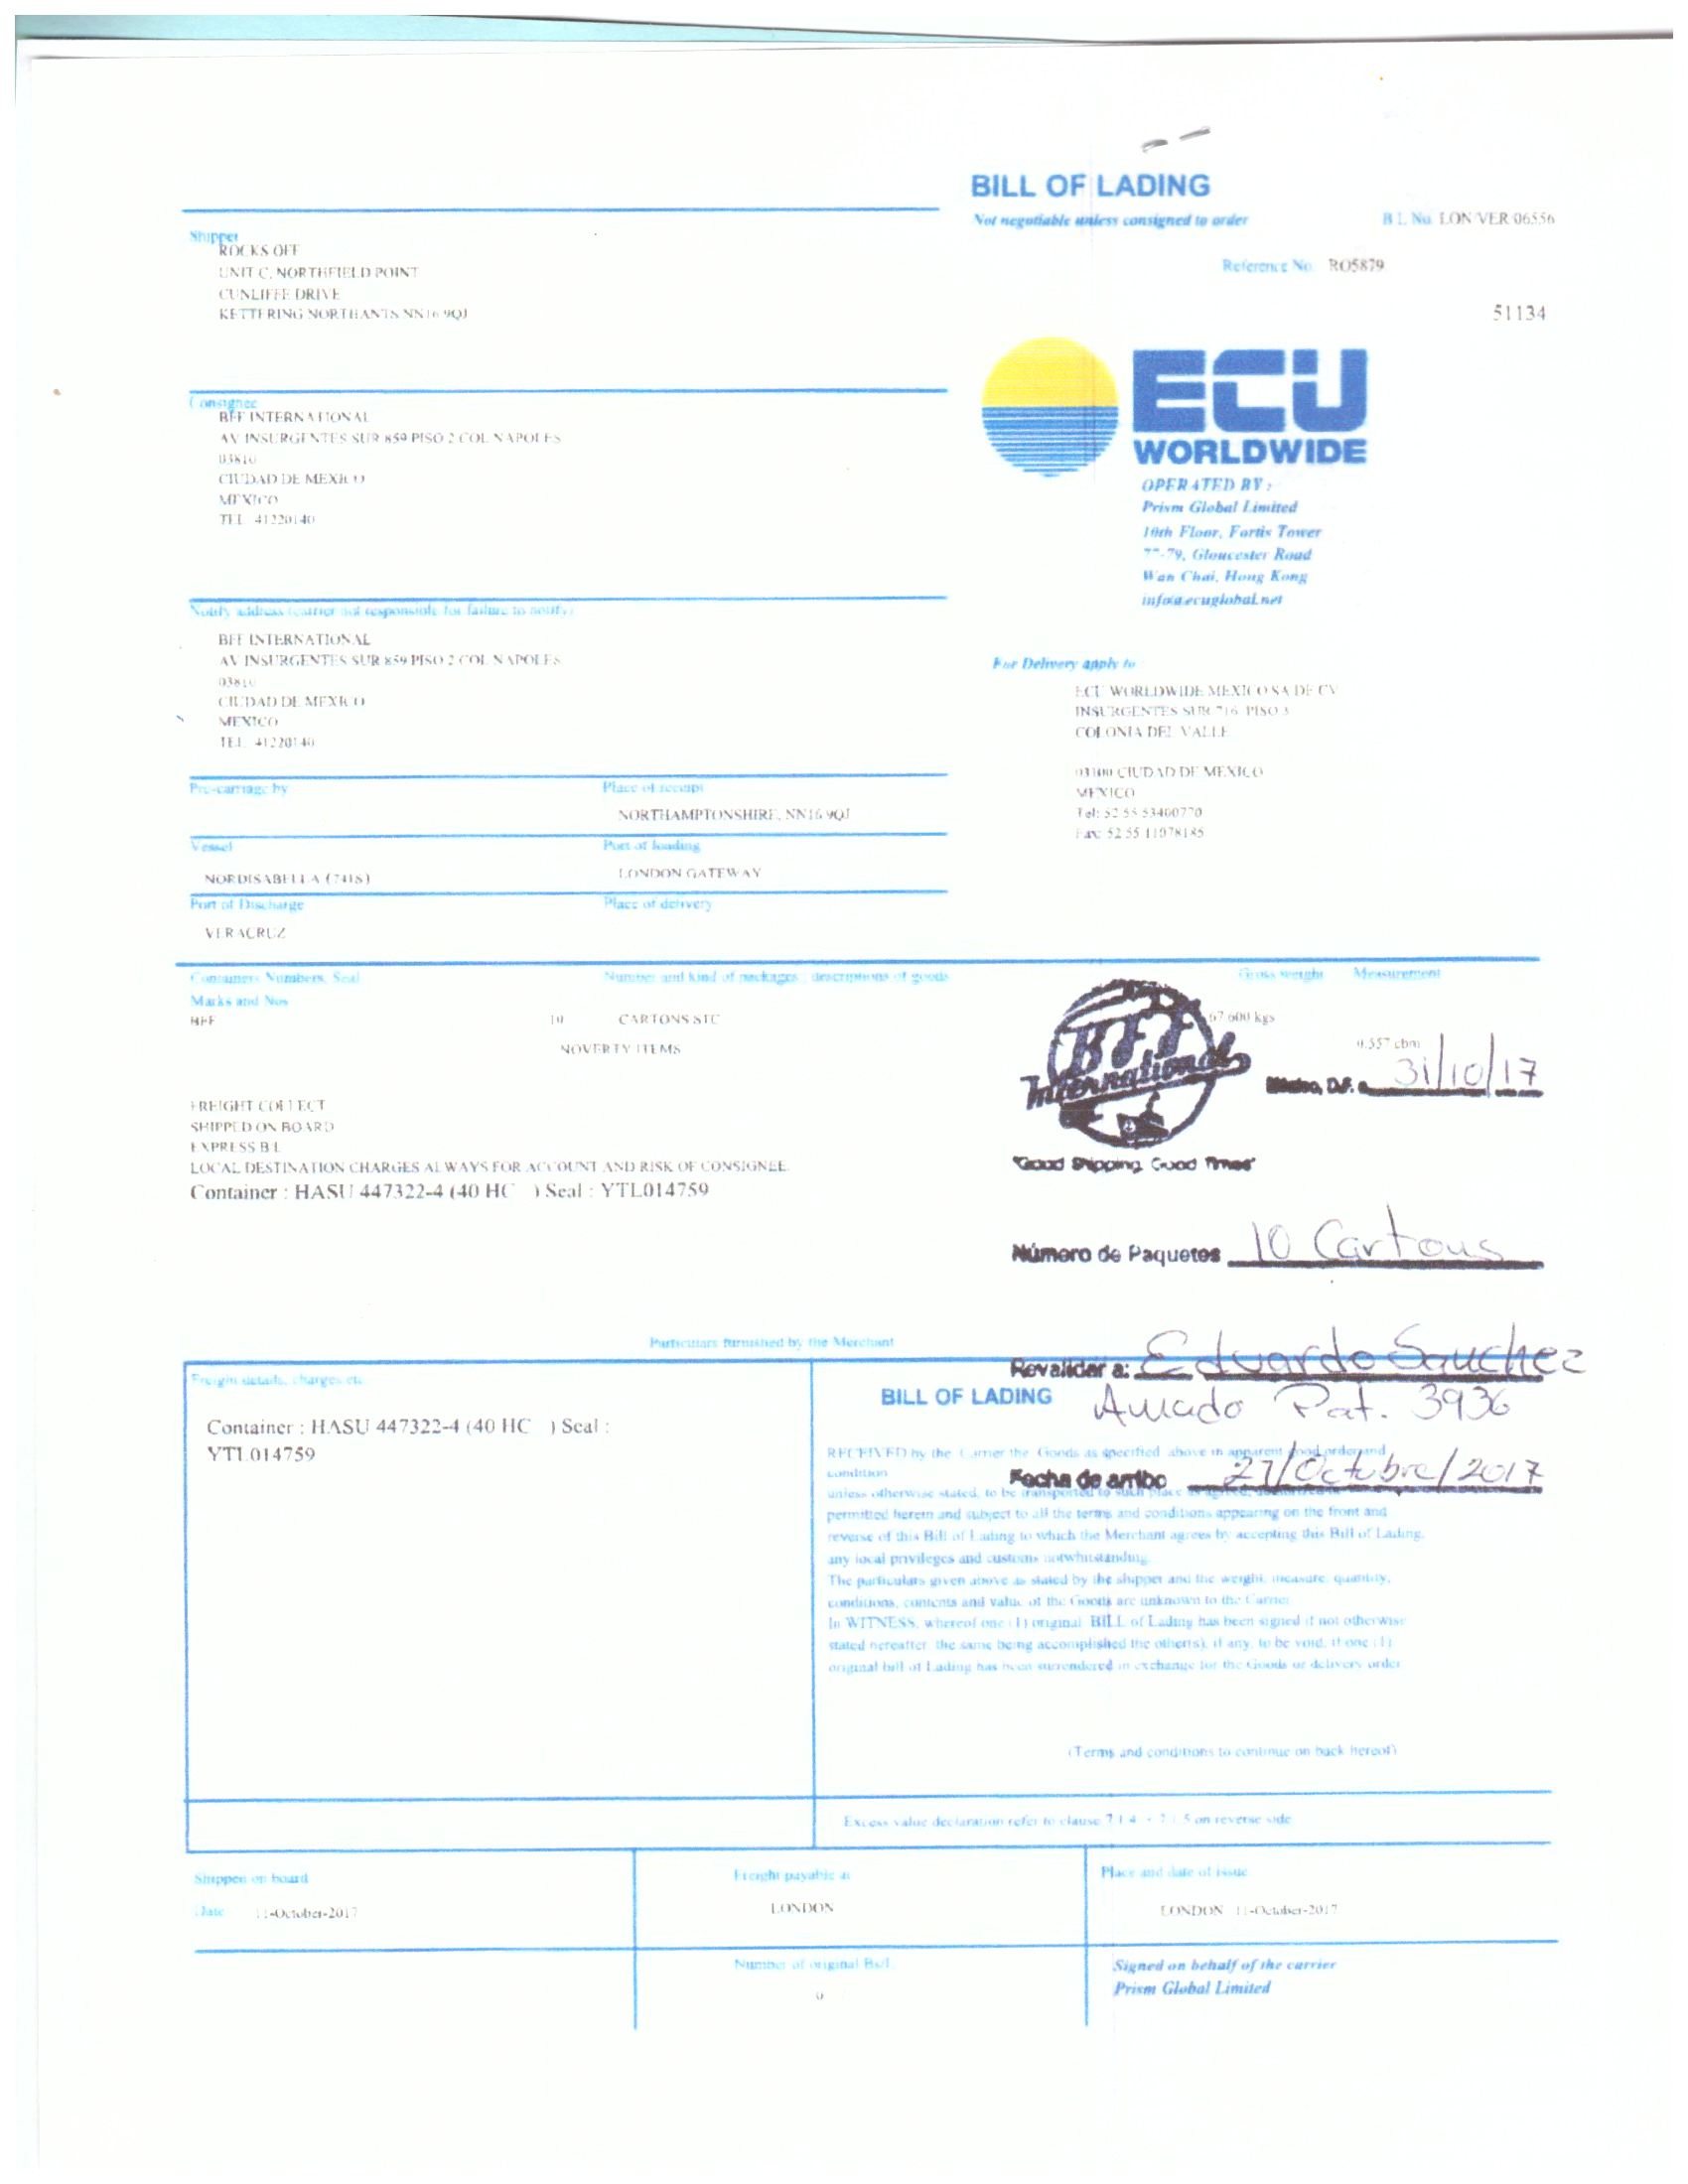 BILL OF LADING
Not negotiable unless consigned to order
B L No. LON/VER/06556
Reference No. RO5879
51134
Shipper
ROCKS OFF
UNIT C, NORTHFIELD POINT
CUNLIFFE DRIVE
KETTERING NORTHANTS NN16 9QJ
Consignee
BFF INTERNATIONAL
AV INSURGENTES SUR 859 PISO 2 COL NAPOLES
03810
CIUDAD DE MEXICO
MEXICO
TEL: 41220140
ECU
WORLDWIDE
OPERATED BY :
Prism Global Limited
10th Floor, Fortis Tower
77-79, Gloucester Road
Wan Chai, Hong Kong
info@ecuglobal.net
Notify address (carrier not responsible for failure to notify)
BFF INTERNATIONAL
AV INSURGENTES SUR 859 PISO 2 COL NAPOLES
03810
CIUDAD DE MEXICO
MEXICO
TEL: 41220140
For Delivery apply to :
ECU WORLDWIDE MEXICO SA DE CV
INSURGENTES SUR 716, PISO 3
COLONIA DEL VALLE
03100 CIUDAD DE MEXICO
MEXICO
Tel: 52 55 53400770
Fax: 52 55 11078185
Pre-carriage by
Place of receipt
NORTHAMPTONSHIRE, NN16 9QJ
Vessel
Port of loading
NORDISABELLA (741S)
LONDON GATEWAY
Port of Discharge
Place of delivery
VERACRUZ
Containers Numbers, Seal
Number and kind of packages : descriptions of goods
Gross weight
Measurement
Marks and Nos
BFF
10
CARTONS STC
67.600 kgs
NOVERTY ITEMS
0.557 cbm
BFF
International
México, D.F. a 31/10/17
"Good Shipping, Good Times"
FREIGHT COLLECT
SHIPPED ON BOARD
EXPRESS B/L
LOCAL DESTINATION CHARGES ALWAYS FOR ACCOUNT AND RISK OF CONSIGNEE.
Container : HASU 447322-4 (40 HC ) Seal : YTL014759
Número de Paquetes 10 Cartons
Particulars furnished by the Merchant
Revalidar a: Eduardo Sanchez
Amado Pat. 3936
Fecha de arribo 27/Octubre/2017
Freight details, charges etc
Container : HASU 447322-4 (40 HC ) Seal :
YTL014759
BILL OF LADING
RECEIVED by the Carrier the Goods as specified above in apparent good order and
condition
unless otherwise stated, to be transported to such place as agreed,
permitted herein and subject to all the terms and conditions appearing on the front and
reverse of this Bill of Lading to which the Merchant agrees by accepting this Bill of Lading,
any local privileges and customs notwhitstanding.
The particulars given above as stated by the shipper and the weight, measure, quantity,
conditions, contents and value of the Goods are unknown to the Carrier.
In WITNESS, whereof one (1) original BILL of Lading has been signed if not otherwise
stated hereafter, the same being accomplished the other(s), if any, to be void, if one (1)
original bill of Lading has been surrendered in exchange for the Goods or delivery order
(Terms and conditions to continue on back hereof)
Excess value declaration refer to clause 7.1.4 + 7.1.5 on reverse side
Shipped on board
Date 11-October-2017
Freight payable at
LONDON
Place and date of issue
LONDON 11-October-2017
Number of original Bs/L
0
Signed on behalf of the carrier
Prism Global Limited